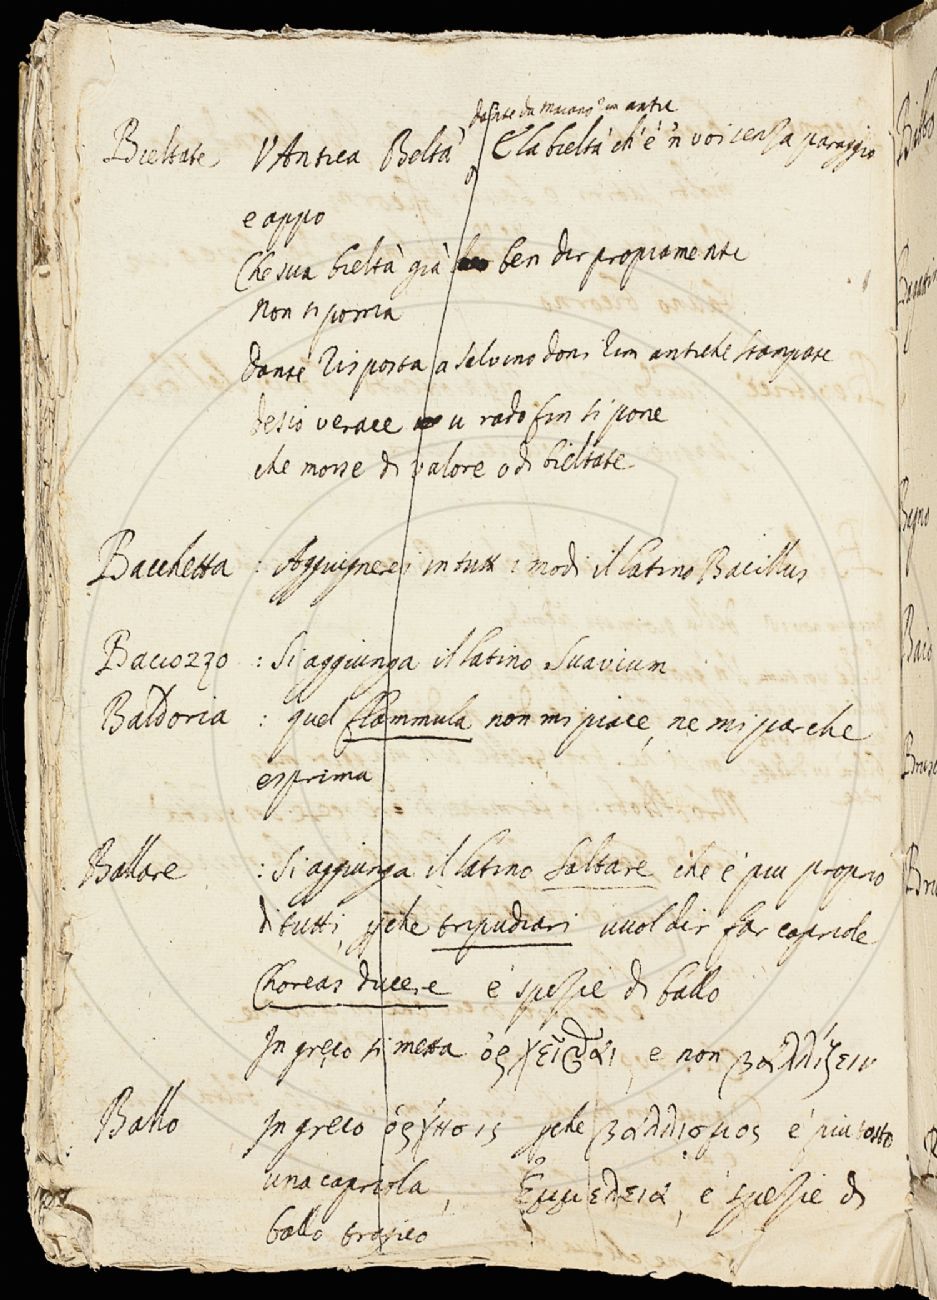 Dante da Maiano rim antic
Bieltate V Antica Beltà E la bieltà ch'è 'n voi senza paraggio
e appo
Che sua bieltà già ben dir propiamente
Non si porria
Dante Risposta a Salvino Doni Rim antiche stampate
Desio verace u rado fin si pone
che mosse di valore o di bieltate
Bacchetta : Aggiugnerei in tutti i modi il latino Bacillus
Baciozzo : Si aggiunga il latino Suavium
Baldoria : quel flammula non mi piace, ne mi par che
esprima
Ballare : Si aggiunga il latino Saltare che è piu proprio
di tutti, pche tripudiari vuol dir far capriole
Choreas ducere è spezie di ballo
In greco si metta ὀρχεῖσθαι, e non βαλλίζειν
Ballo In greco ὄρχησις pche βαλλισμος è piu tosto
una capriola, Ἐμμελεια, è spezie di
ballo tragico